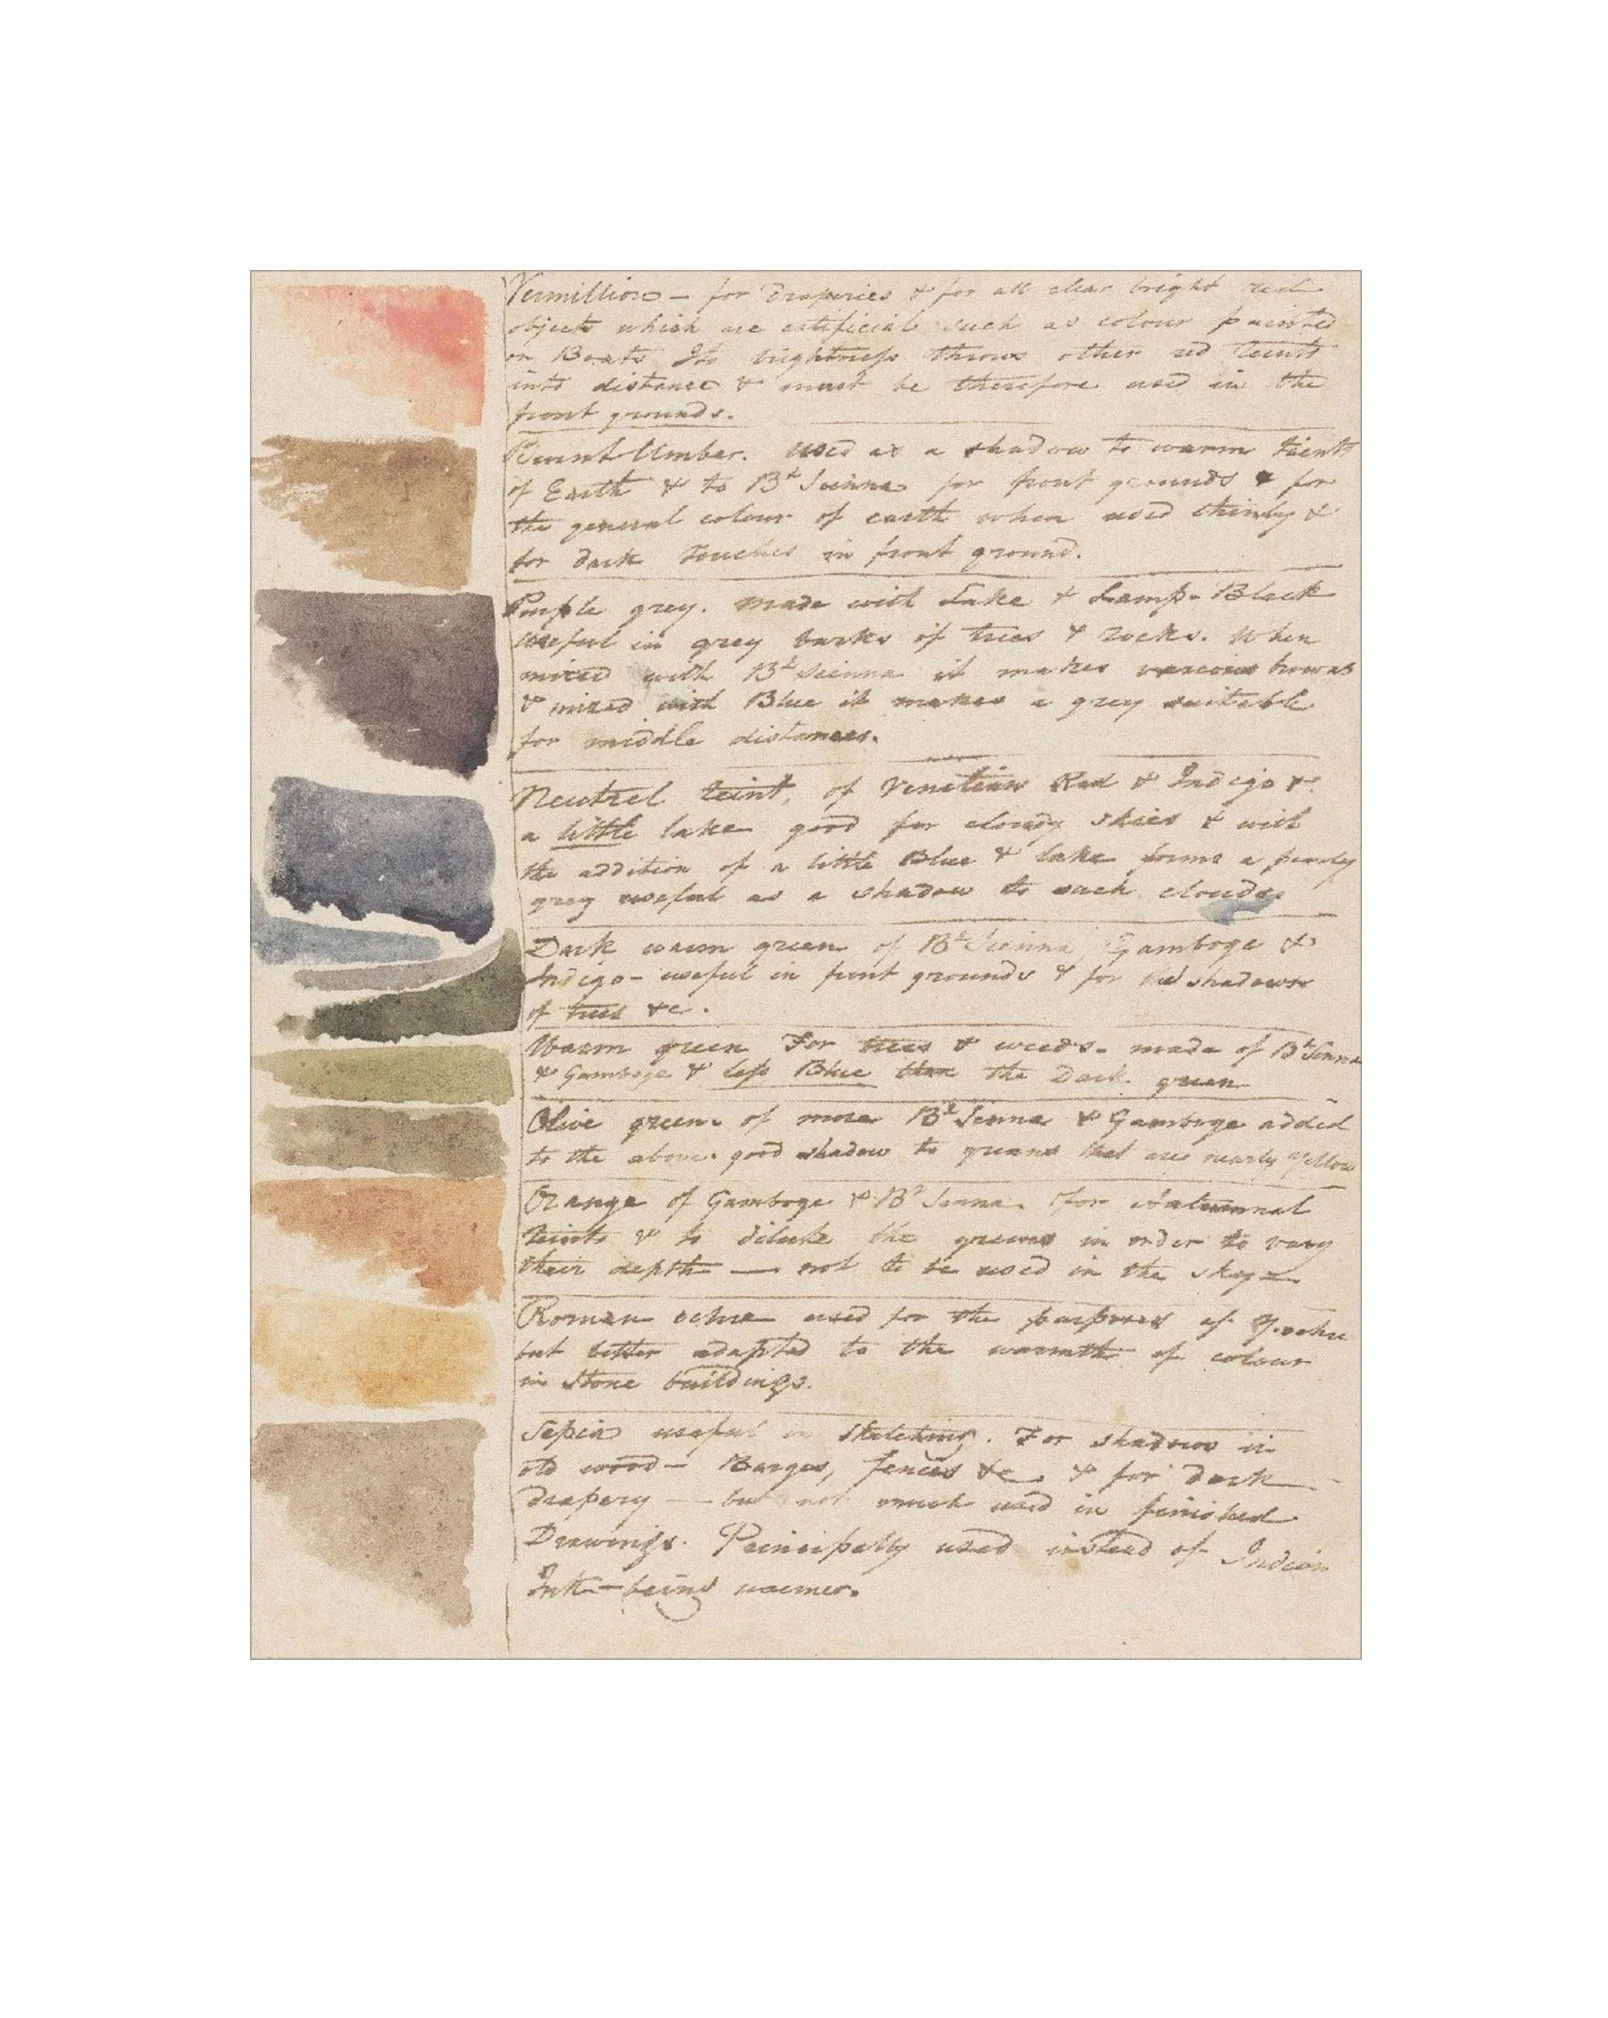 Vermillion – for Draperies & for all clear bright red
objects which are artificial such as colour painted
on Boats. Its brightness throws other red teints
into distance & must be therefore used in the
front grounds.
Burnt Umber. used as a shadow to warm teints
of Earth & to Bt Sienna for front grounds & for
the general colour of earth when used thinly &
for dark touches in front ground.
Purple grey. made with Lake & Lamp-Black
useful in grey barks of trees & rocks. When
mixed with Bt Sienna it makes various browns
& mixed with Blue it makes a grey suitable
for middle distances.
Neutral teint, of Venetian Red & Indigo &
a little lake good for cloudy skies & with
the addition of a little Blue & lake forms a pearly
grey useful as a shadow to such clouds.
Dark warm green of Bt Sienna, Gamboge &
Indigo – useful in front grounds & for shadows
of trees &c.
Warm green For trees & weeds – made of Bt Sienna
& Gamboge & less Blue than the Dark green
Olive green. of more Bt Sienna & Gamboge added
to the above. good shadow to greens that are nearly yellow
Orange of Gamboge & Bt Sienna. for Autumnal
teints & to dilute the greens in order to vary
their depth — not to be used in the sky –
Roman ochre used for the purposes of Y. ochre
but better adapted to the warmth of colour
in Stone buildings.
Sepia useful in sketching. For shadows in
old wood – Barges, fences &c. & for dark
drapery — but not much used in finished
Drawings. Principally used instead of Indian
Ink – being warmer.